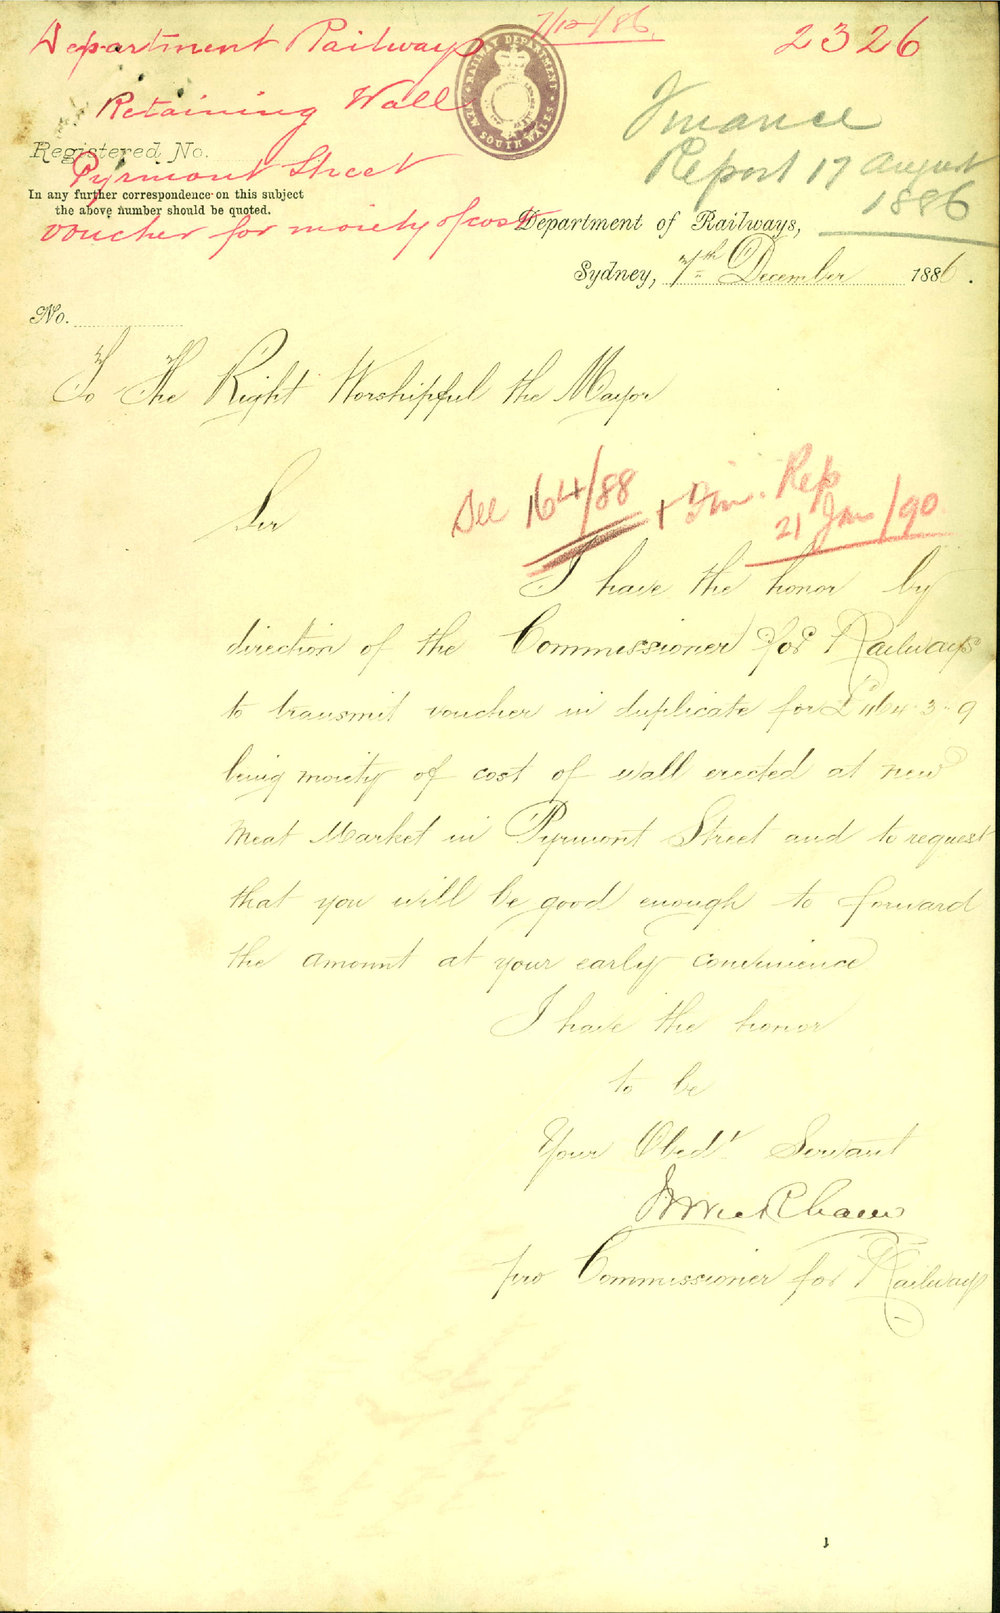 7/12/86. 2326
Department Railways
Retaining Wall
Pyrmont Street
voucher for moiety of cost
RAILWAY DEPARTMENT
NEW SOUTH WALES
Finance
Report 17 August
1886
Registered No.
In any further correspondence on this subject
the above number should be quoted.
Department of Railways,
Sydney, 7th December 1886.
No.
To The Right Worshipful the Mayor
See 164/88 + Fin. Rep
21 Jan/90
Sir
I have the honor by
direction of the Commissioner for Railways
to transmit voucher in duplicate for £464.3.9
being moiety of cost of wall erected at new
Meat Market in Pyrmont Street and to request
that you will be good enough to forward
the amount at your early convenience
I have the honor
to be
Your Obedt Servant
pro Commissioner for Railways